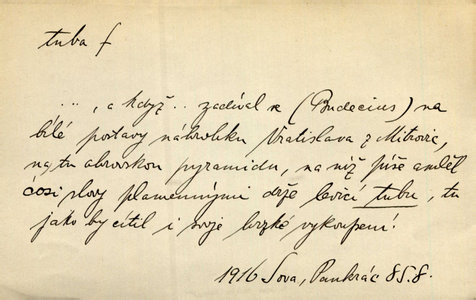 tuba f
..., a když.. zadíval se (Budecius) na
bílé postavy náhrobku Vratislava z Mitrovic,
na tu obrovskou pyramidu, na níž píše anděl
cosi slovy plamennými drže levicí tubu, tu
jako by cítil i svoje brzké vykoupení!
1916 Sova, Pankrác 85.8.